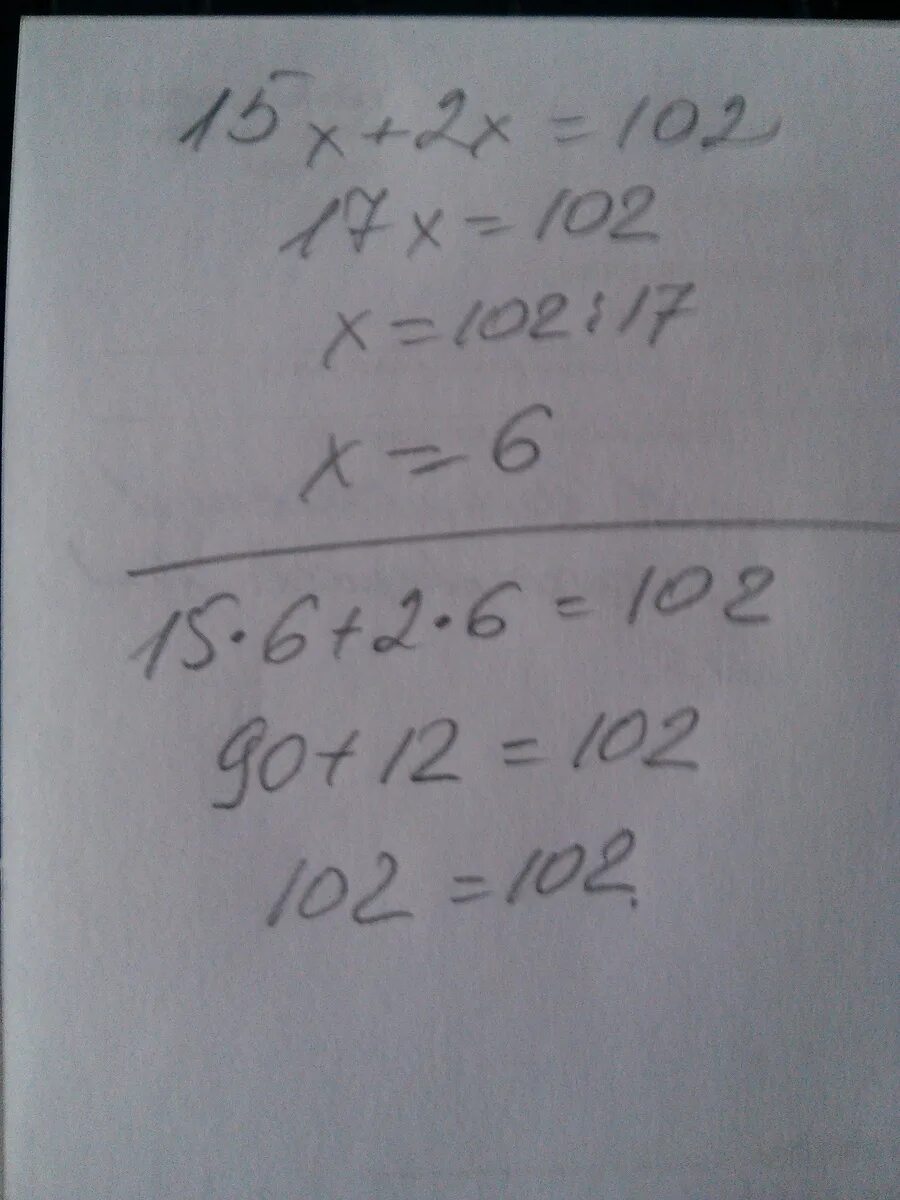 15x+2x=102
17x=102
x=102:17
x=6
15·6+2·6=102
90+12=102
102=102.